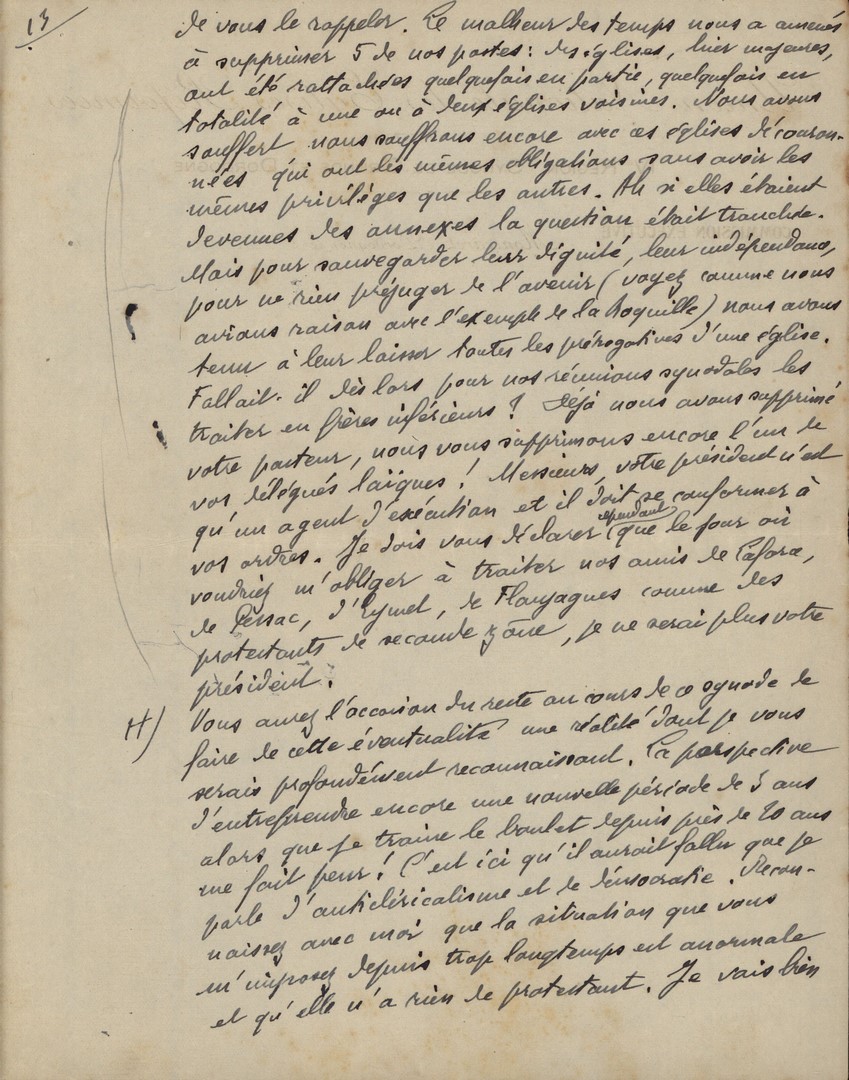 13
de vous le rappeler. Le malheur des temps nous a amenés
à supprimer 5 de nos postes : des églises, hier majeures,
ont été rattachées quelquefois en partie, quelquefois en
totalité à une ou à deux églises voisines. Nous avons
souffert nous souffrons encore avec ces églises découron-
nées qui ont les mêmes obligations sans avoir les
mêmes privilèges que les autres. Ah si elles étaient
devenues des annexes la question était tranchée.
Mais pour sauvegarder leur dignité, leur indépendance,
pour ne rien préjuger de l'avenir (voyez comme nous
avions raison avec l'exemple de la Roquille) nous avons
tenu à leur laisser toutes les prérogatives d'une église.
Fallait-il dès lors pour nos réunions synodales les
traiter en frères inférieurs ? Déjà nous avons supprimé
votre pasteur, nous vous supprimons encore l'un de
vos délégués laïques ! Messieurs, votre président n'est
qu'un agent d'exécution et il doit se conformer à
vos ordres. Je dois vous déclarer cependant que le jour où
voudriez m'obliger à traiter nos amis de Laforce,
de Pessac, d'Eymet, de Flaujagues comme des
protestants de seconde zône, je ne serai plus votre
président.
H) Vous aurez l'occasion du reste au cours de ce synode de
faire de cette éventualité une réalité dont je vous
serais profondément reconnaissant. La perspective
d'entreprendre encore une nouvelle période de 3 ans
alors que je traine le boulet depuis près de 20 ans
me fait peur ! C'est ici qu'il aurait fallu que je
parle d'anticléricalisme et de démocratie. Recon-
naissez avec moi que la situation que vous
m'imposez depuis trop longtemps est anormale
et qu'elle n'a rien de protestant. Je vais bien